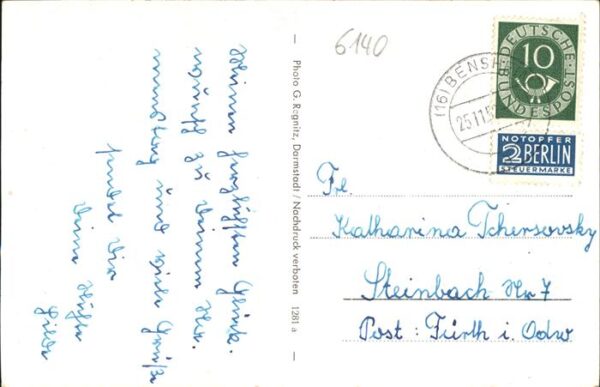 Meinen herzlichsten Glück-
wunsch zu Deinem Na-
menstag und viele Grüße
sendet Dir
Deine Nichte
Photo G. Regnitz, Darmstadt / Nachdruck verboten 1281 a
6140
DEUTSCHE BUNDESPOST
10
(16) BENSH
25.11.5
NOTOPFER
2 BERLIN
STEUERMARKE
Frl.
Katharina Tchersovsky
Steinbach Nr 7
Post: Fürth i. Odw